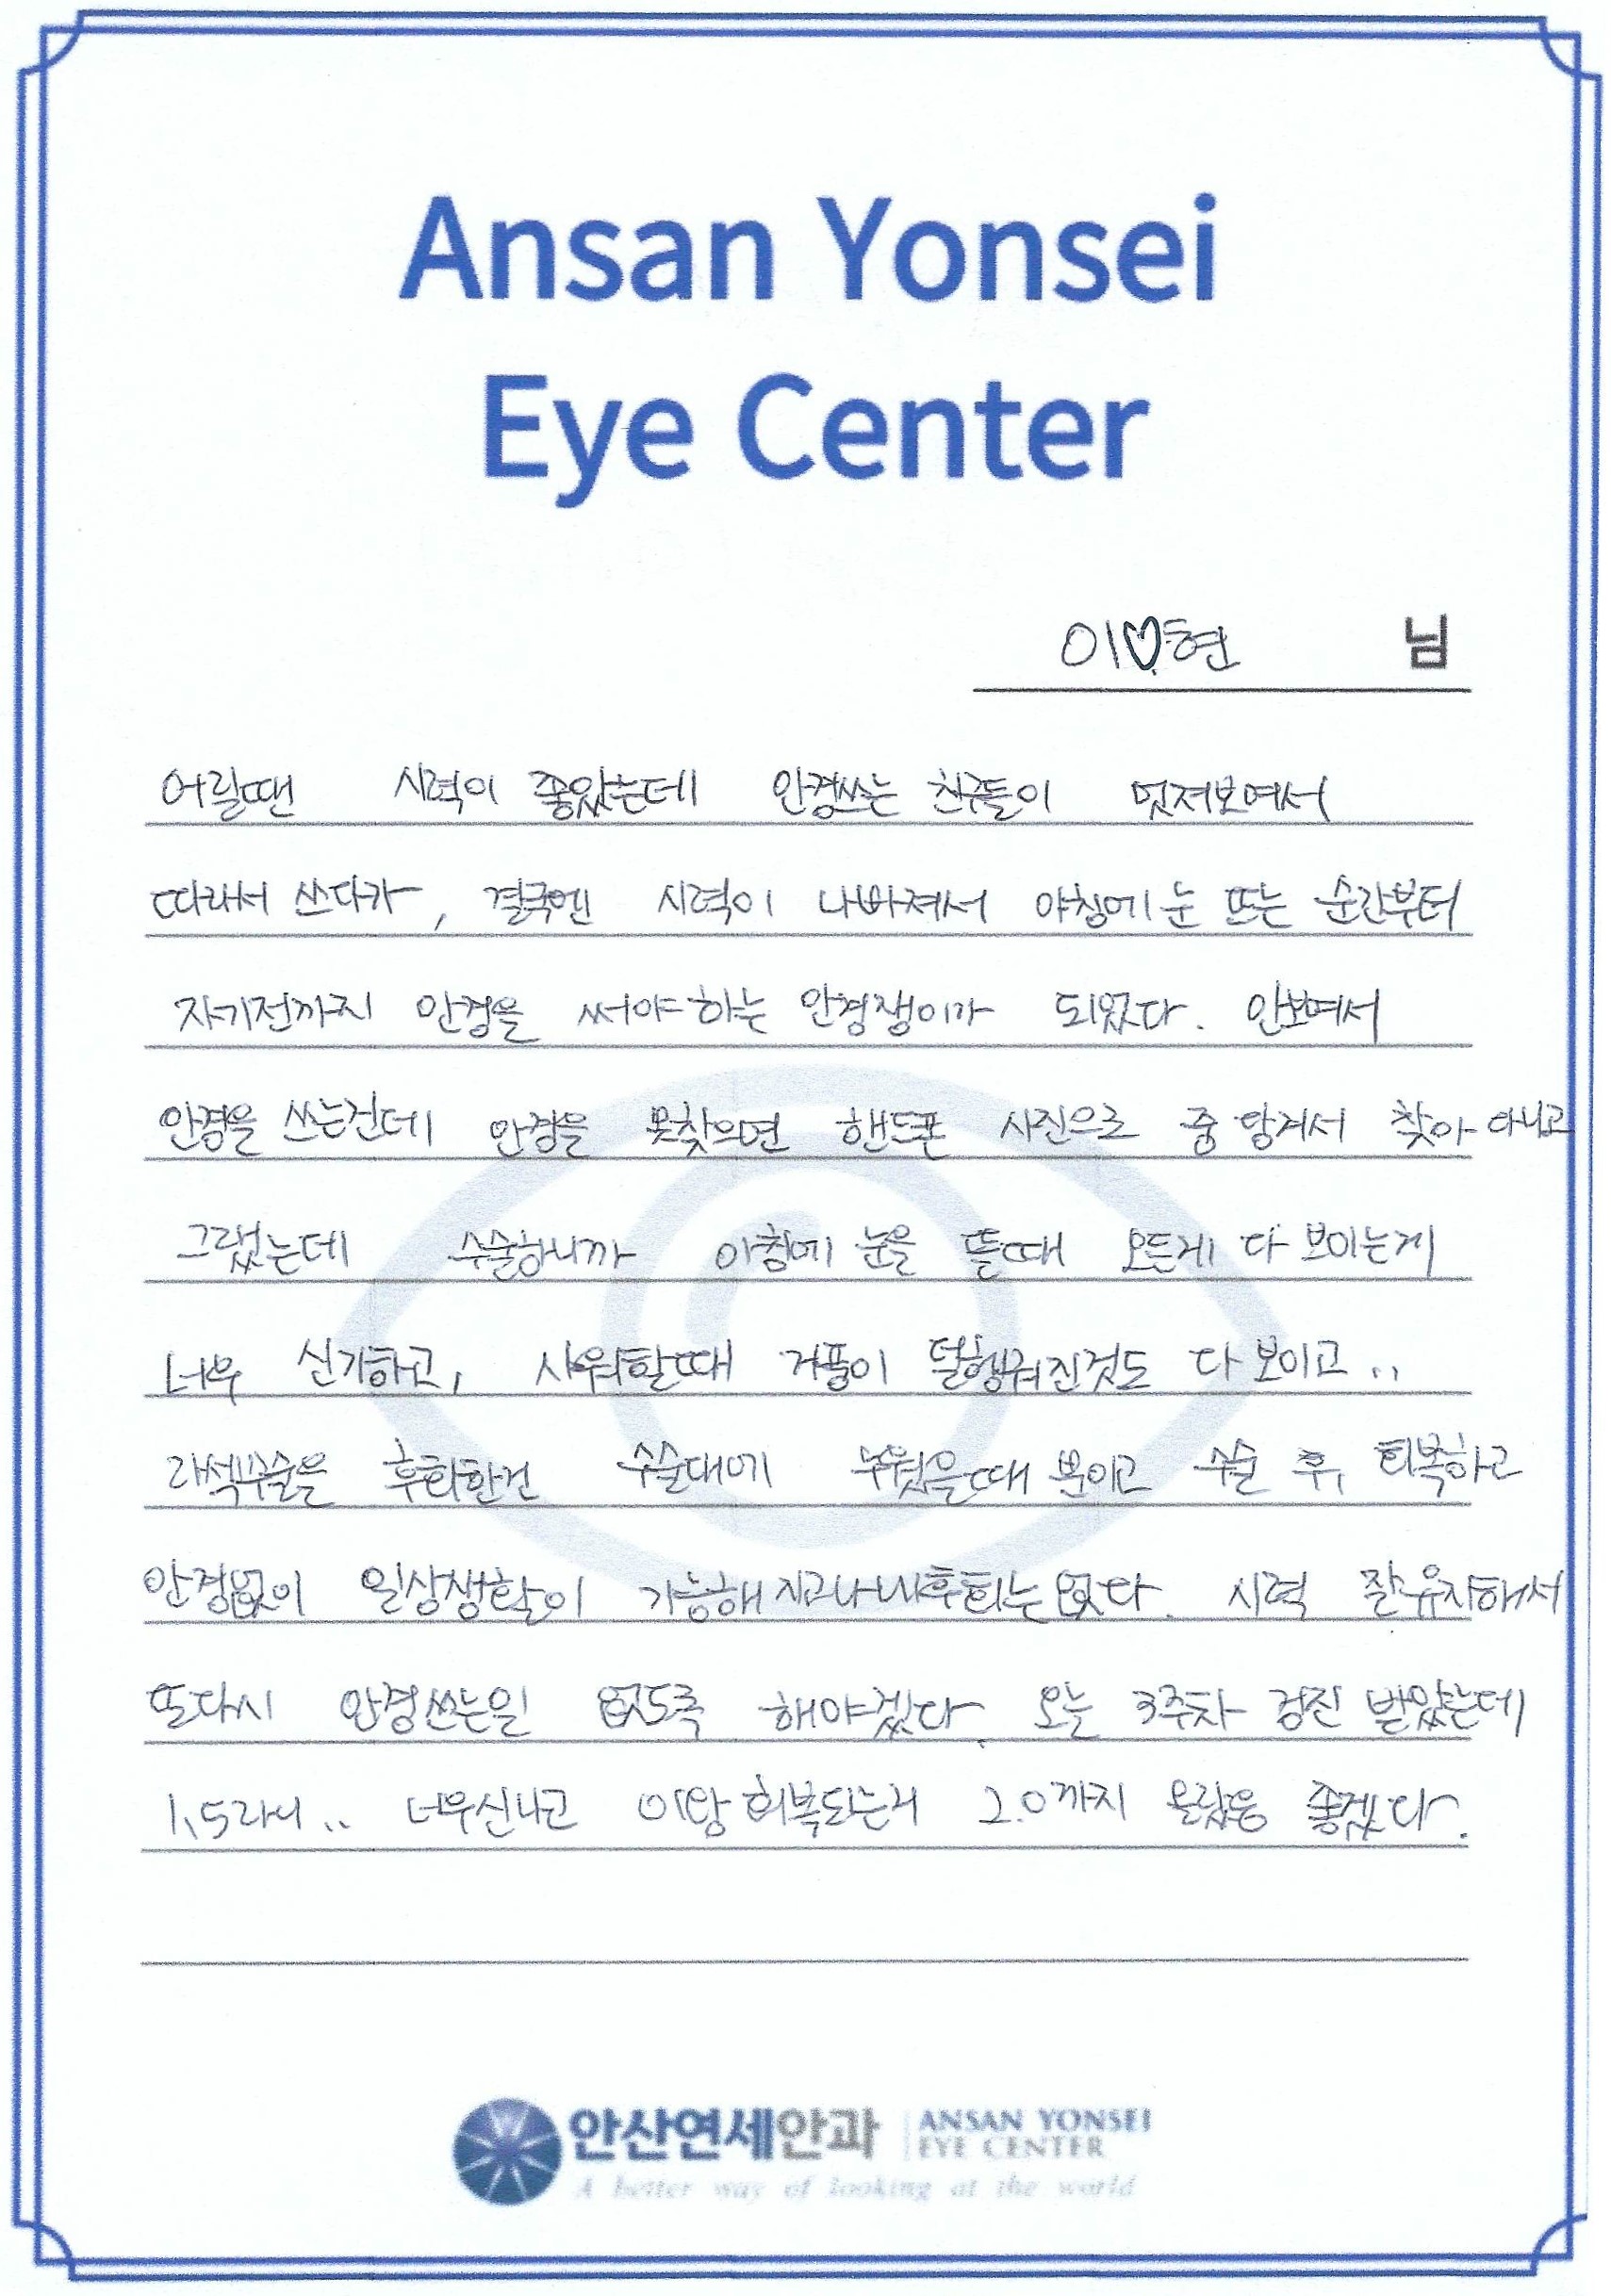 Ansan Yonsei
Eye Center
이♡현 님
어릴땐 시력이 좋았는데 안경쓰는 친구들이 멋져보여서
따라서 쓰다가, 결국엔 시력이 나빠져서 아침에 눈 뜨는 순간부터
자기전까지 안경을 써야하는 안경쟁이가 되었다. 안보여서
안경을 쓰는건데 안경을 못찾으면 핸드폰 사진으로 줌 땅겨서 찾아 다니고
그랬는데 수술하니까 아침에 눈을 뜰때 모든게 다 보이는게
너무 신기하고, 샤워할때 거품이 덜헹궈진것도 다 보이고..
라섹수술을 후회한건 수술대에 누웠을때 뿐이고 수술 후, 회복하고
안경없이 일상생활이 가능해지고나니 후회는 없다. 시력 잘유지해서
또다시 안경쓰는일 없도록 해야겠다. 오늘 3주차 검진 받았는데
1.5라니.. 너무신나고 이왕 회복되는거 2.0까지 올랐음 좋겠다.
안산연세안과 ANSAN YONSEI
EYE CENTER
A better way of looking at the world